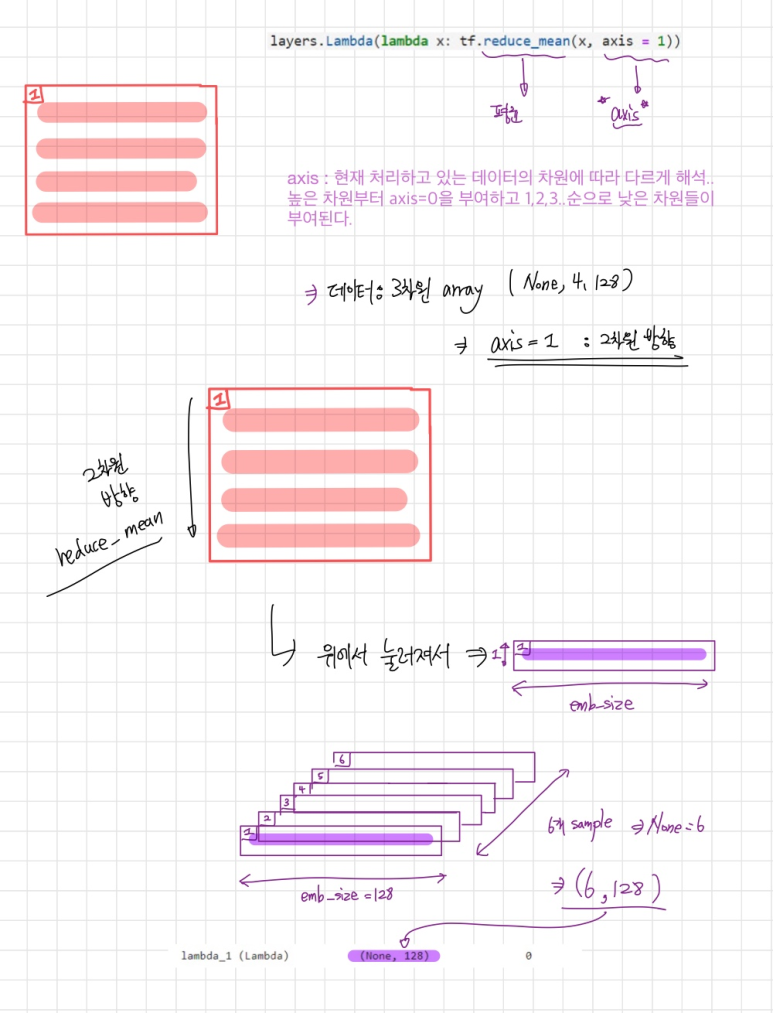 layers.Lambda(lambda x: tf.reduce_mean(x, axis = 1))
평균
*axis*
1
axis : 현재 처리하고 있는 데이터의 차원에 따라 다르게 해석..
높은 차원부터 axis=0을 부여하고 1,2,3..순으로 낮은 차원들이
부여된다.
⇒ 데이터: 3차원 array (None, 4, 128)
⇒ axis = 1 : 2차원 방향
1
2차원
방향
reduce_mean
위에서 눌러져서 ⇒ 1
1
emb_size
6
5
4
3
2
1
6개 sample ⇒ None = 6
emb_size = 128
⇒ (6, 128)
lambda_1 (Lambda) (None, 128) 0